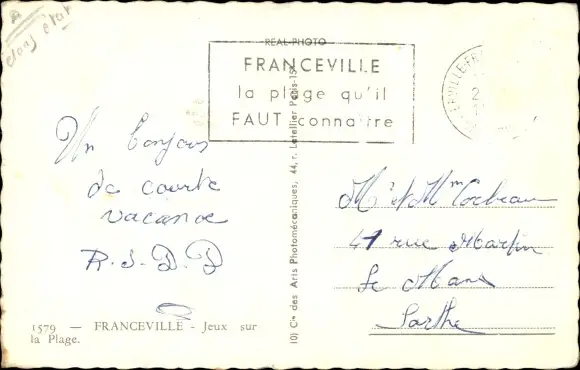 REAL-PHOTO
FRANCEVILLE
la plage qu'il
FAUT connaître
ERVILLE-FR
Un bonjour
de courte
vacance
R.J.D.D
Mr et Mme Corbeau
41 rue Martin
Le Mans
Sarthe
10) Cie des Arts Photomécaniques, 44, r. Letellier Paris-15e
1579 — FRANCEVILLE - Jeux sur
la Plage.